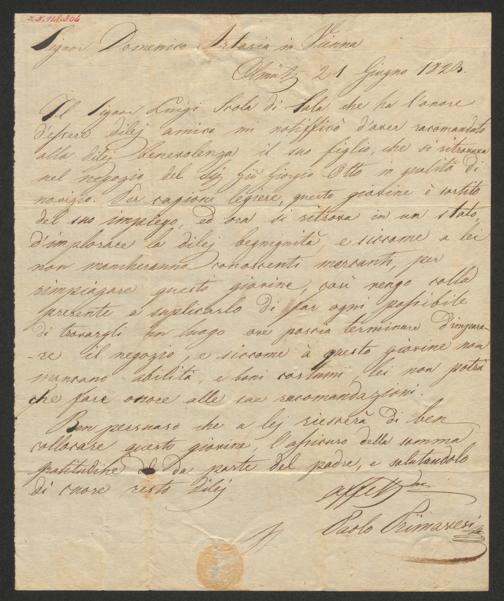 Signor Domenico Artaria in Vienna
Olmütz 21 Giugno 1823.
Il Signor Luigi Scola di Sala che ha l'onore
d'essere dilej amico mi notifficò d'aver racomandato
alla dilej benevolenza il suo figlio, che si ritrovava
nel negozio del Sig. Giorgio Otto in qualità di
novizio. Per cagione legiere, questo giovine è sortito
del suo impiego, ed ora si ritrova in un stato,
d'implorare la dilej begnignità, e siccome a lei
non mancheranno conoscenti mercanti, per
rimpiazare questo giovine, così vengo colla
presente a suplicarlo di far ogni possibile
di trovargli un luogo ove possia terminare d'impara-
-re il negozio, e siccome à questo giovine non
mancano abilità, e boni costumi lei non potrà
che fare onore alle sue racomandazioni.
Ben persuaso che a lej riescirà di ben
collocare questo giovine l'assicuro della somma
gratitudine da parte del padre, e salutandolo
di cuore resto dilej
affett.mo
Paolo Primavesi